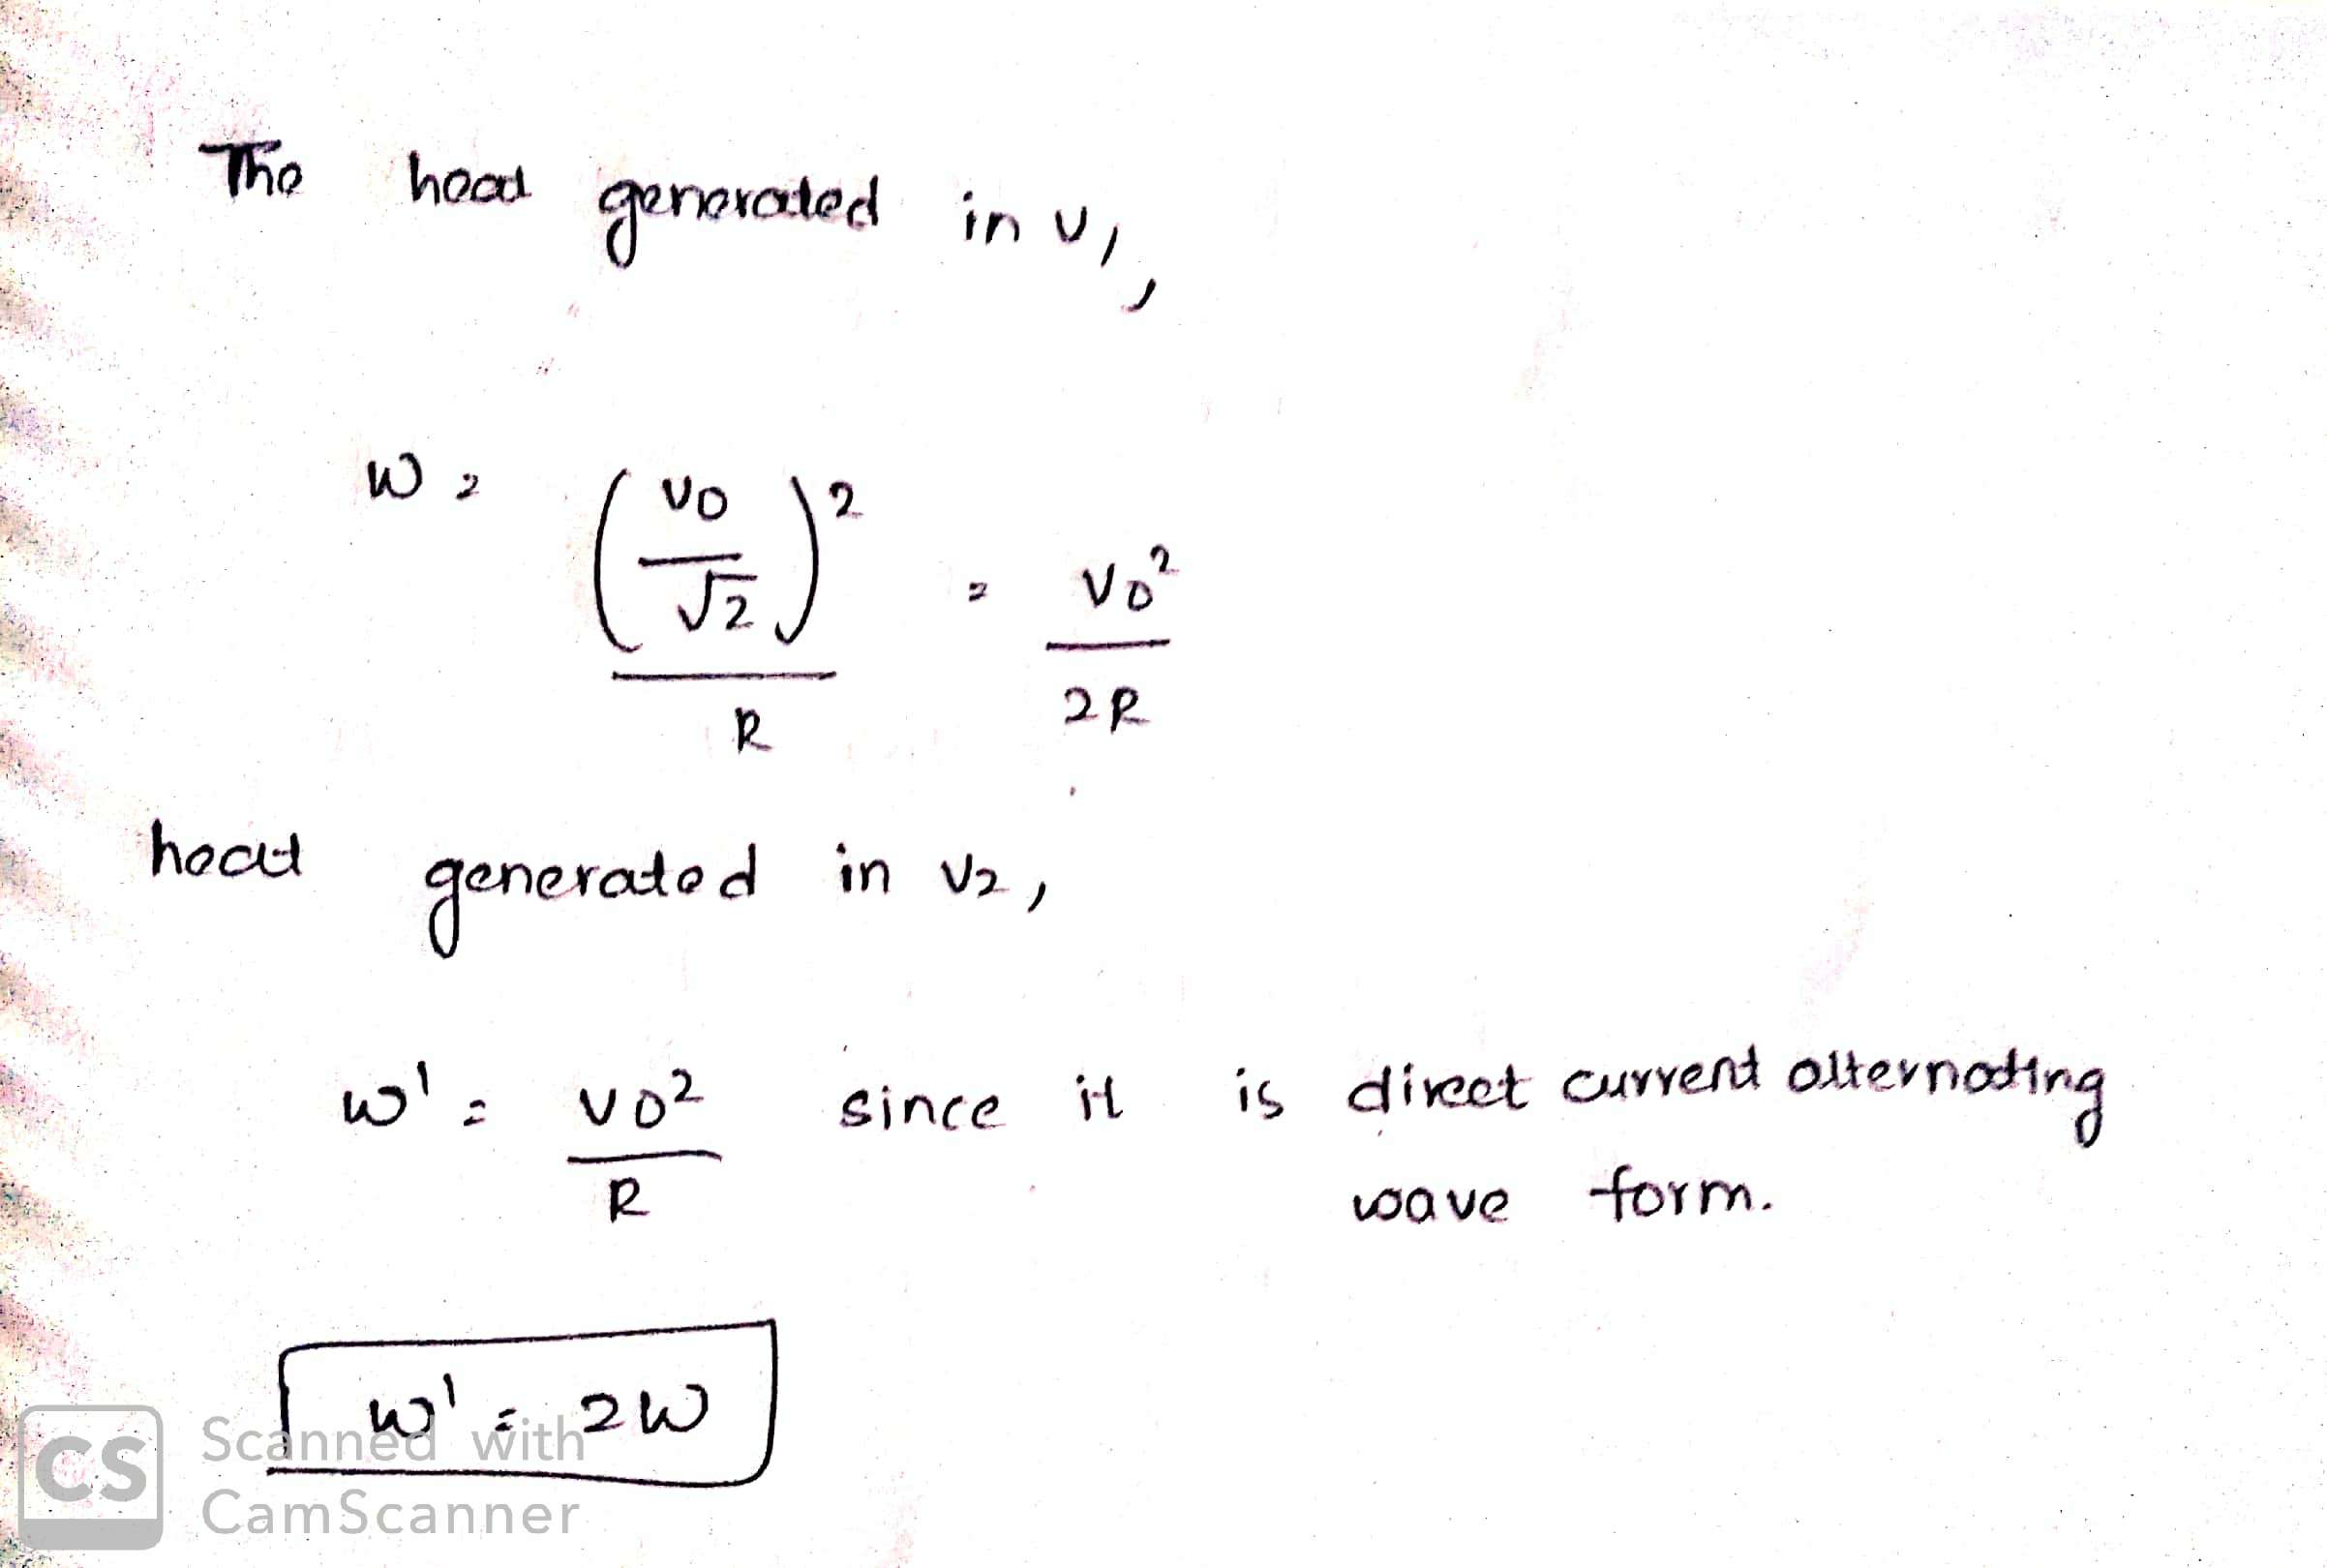 The heat generated in v1,
W = (v0/√2)²/R = v0²/2R
heat generated in v2,
w' = v0²/R since it is direct current alternating
wave form.
w' = 2W
CS Scanned with
CamScanner